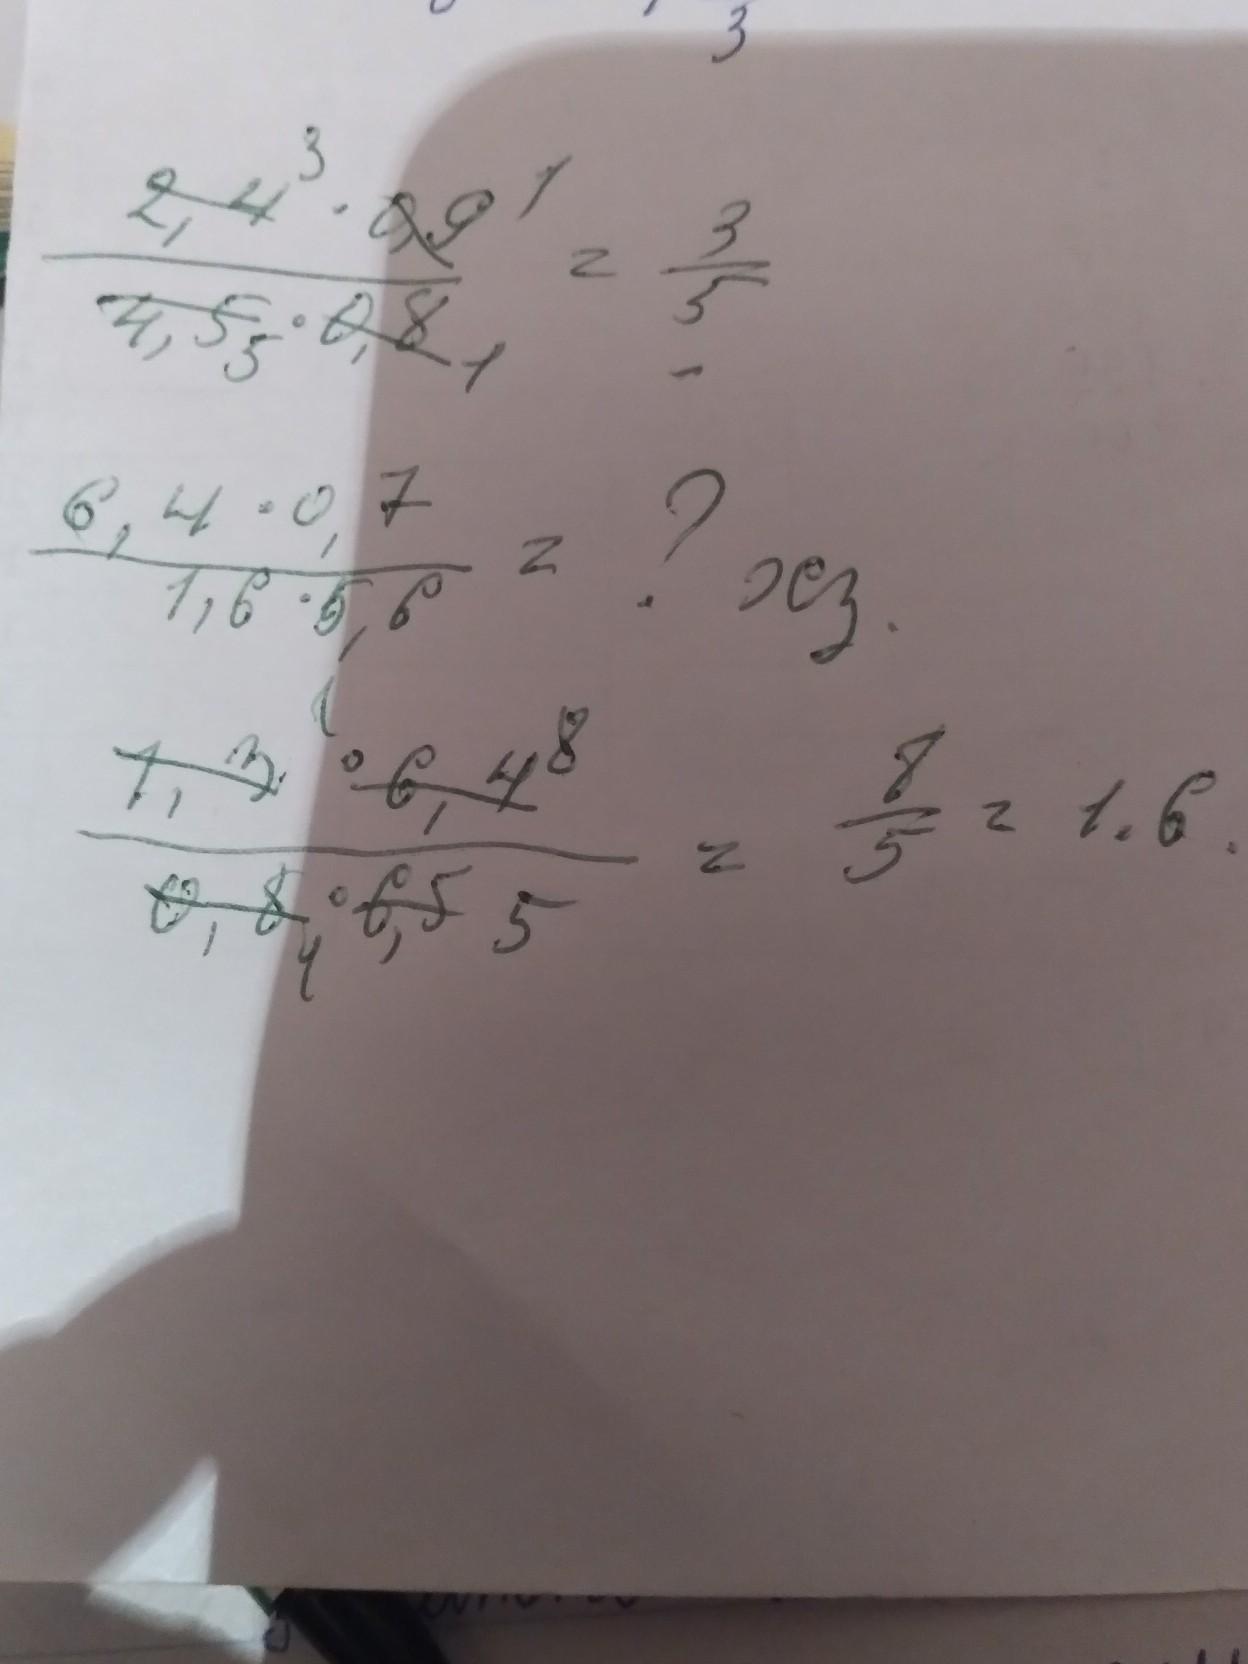 3
2,4³ · 0,9 1
4,5 5 · 0,8 1
= 3/5
6,4 · 0,7
1,6 · 5,6
= ? хез.
1
1,3 · 6,4 8
0,8 1 · 6,5 5
= 8/5 = 1.6.